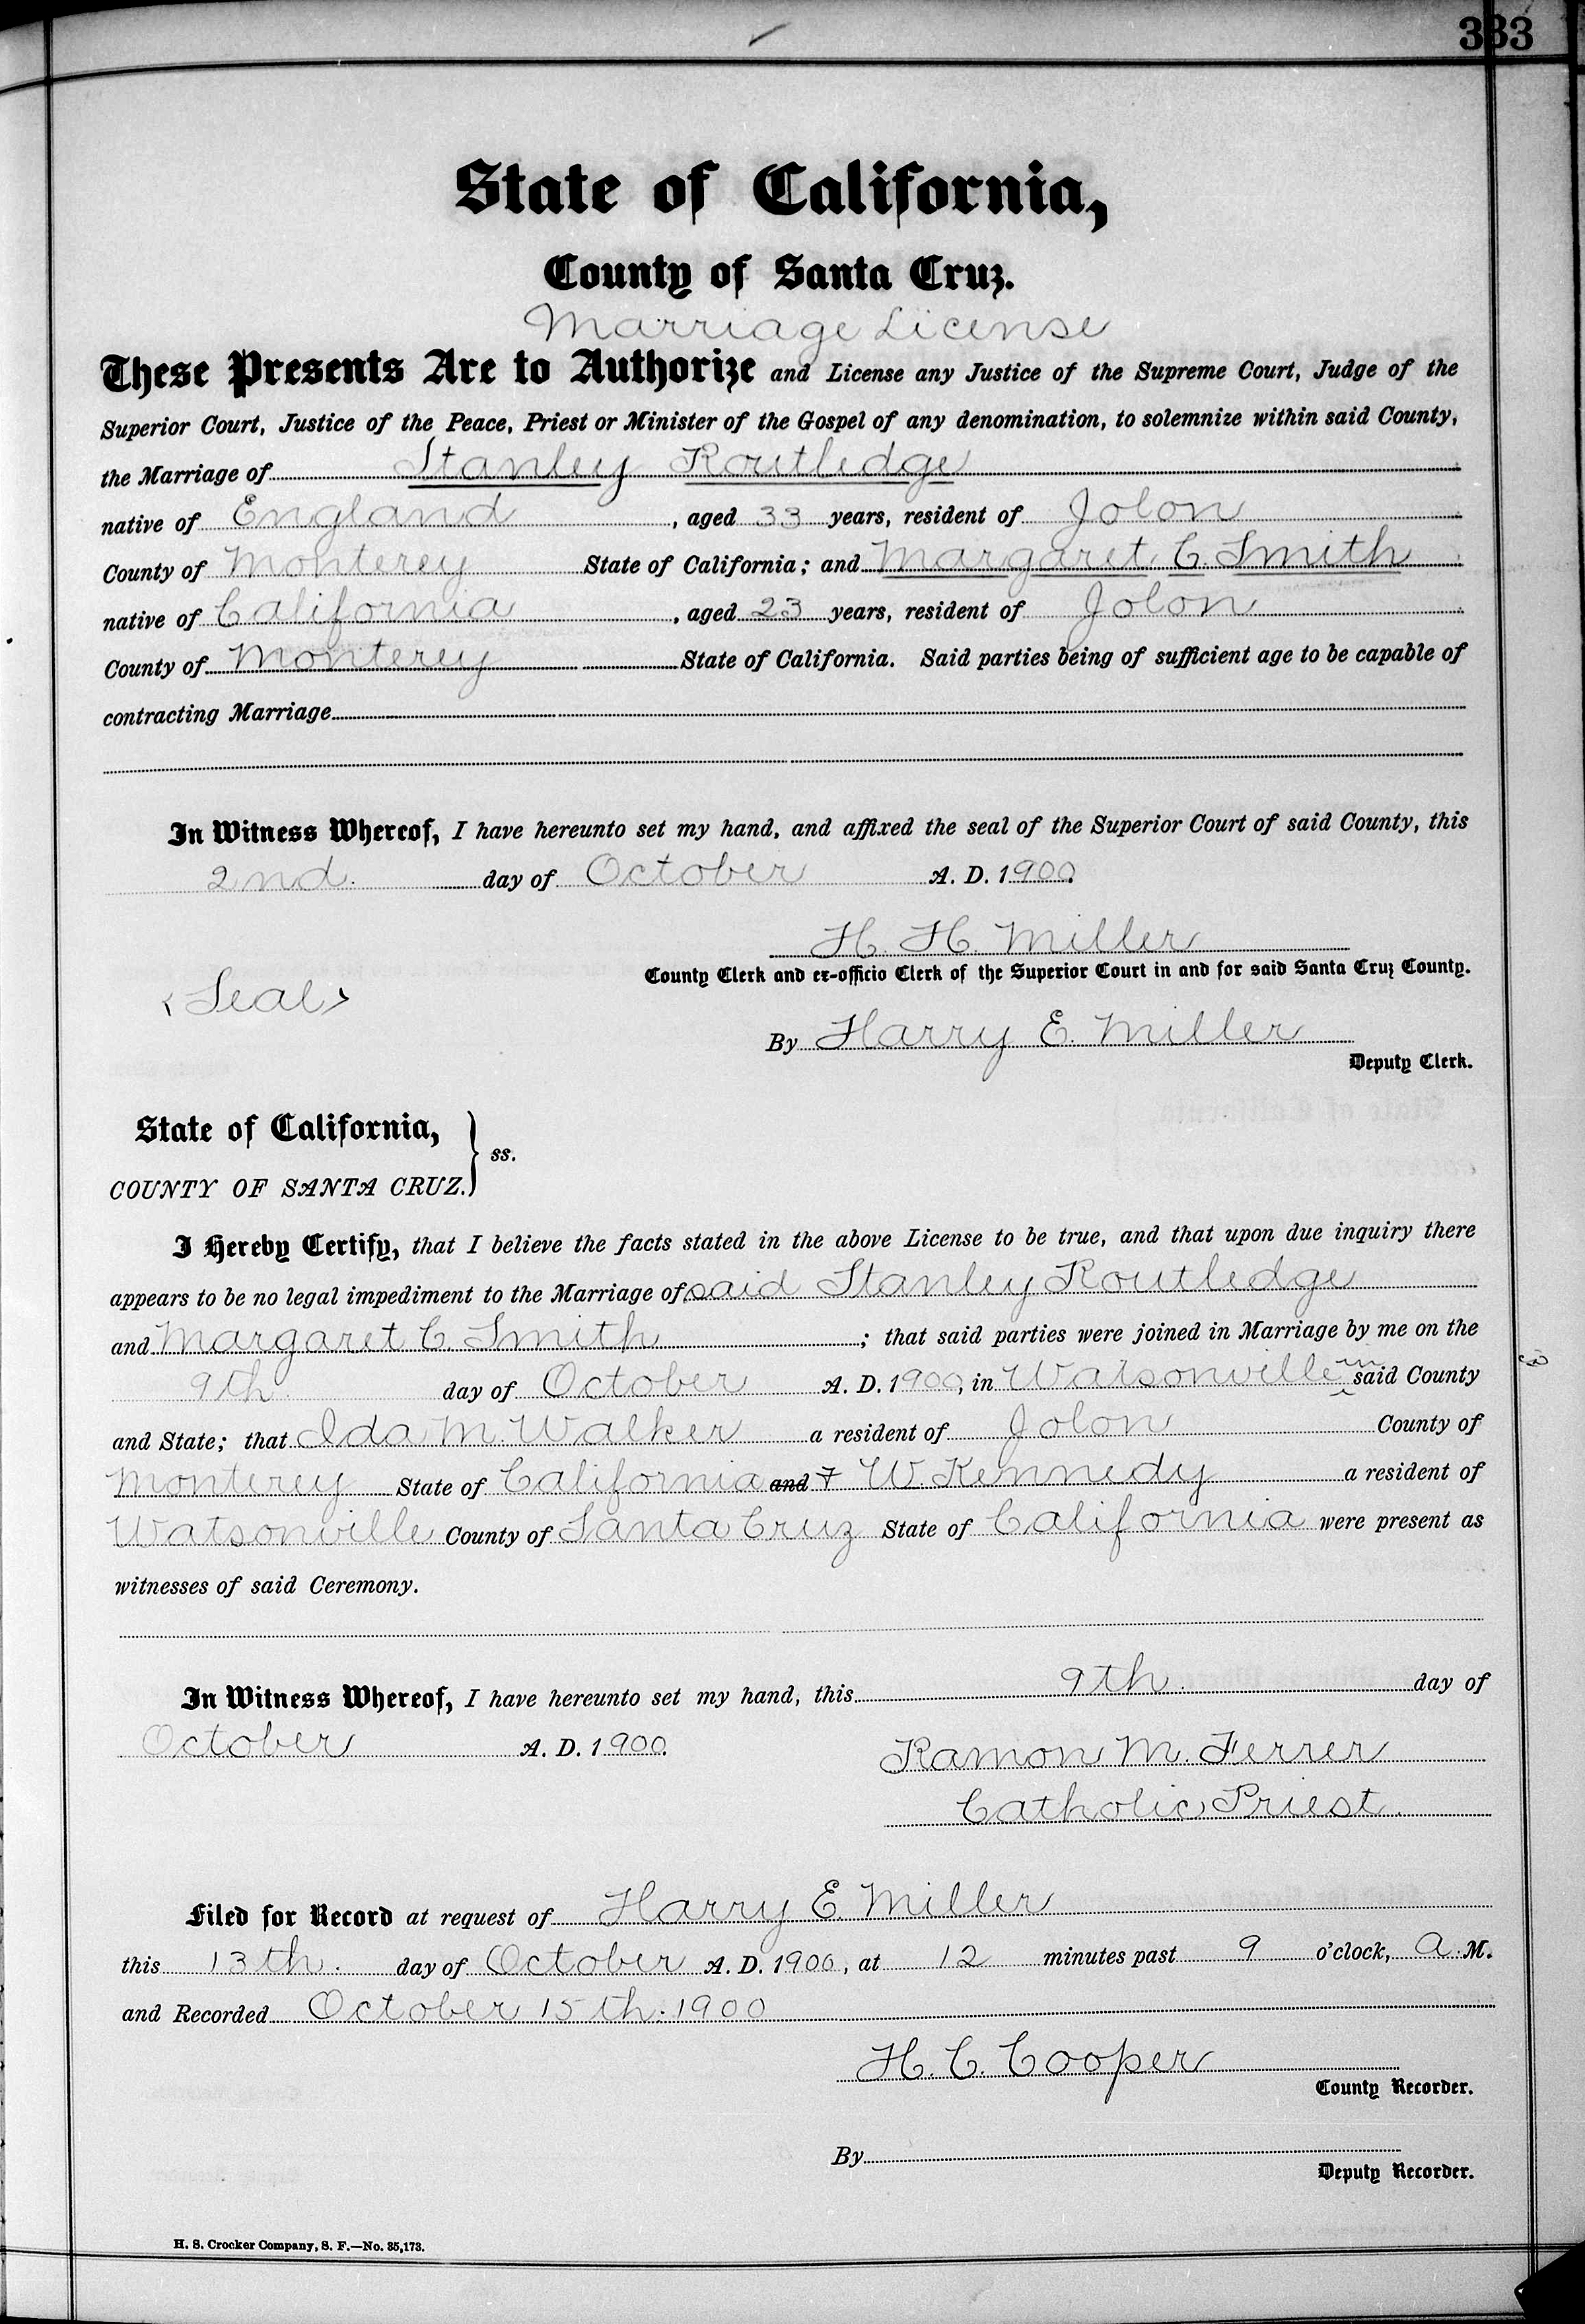 333
State of California,
County of Santa Cruz.
Marriage License
These Presents Are to Authorize and License any Justice of the Supreme Court, Judge of the
Superior Court, Justice of the Peace, Priest or Minister of the Gospel of any denomination, to solemnize within said County,
the Marriage of Stanley Routledge
native of England, aged 33 years, resident of Jolon
County of Monterey State of California; and Margaret C. Smith
native of California, aged 23 years, resident of Jolon
County of Monterey State of California. Said parties being of sufficient age to be capable of
contracting Marriage
In Witness Whereof, I have hereunto set my hand, and affixed the seal of the Superior Court of said County, this
2nd. day of October A. D. 1900.
H. H. Miller
County Clerk and ex-officio Clerk of the Superior Court in and for said Santa Cruz County.
<Seal>
By Harry E. Miller
Deputy Clerk.
State of California,
COUNTY OF SANTA CRUZ. } ss.
I Hereby Certify, that I believe the facts stated in the above License to be true, and that upon due inquiry there
appears to be no legal impediment to the Marriage of said Stanley Routledge
and Margaret C. Smith; that said parties were joined in Marriage by me on the
9th day of October A. D. 1900, in Watsonville in said County
and State; that Ida M. Walker a resident of Jolon County of
Monterey State of California and F W. Kennedy a resident of
Watsonville County of Santa Cruz State of California were present as
witnesses of said Ceremony.
In Witness Whereof, I have hereunto set my hand, this 9th. day of
October A. D. 1900.
Ramon M. Ferrer
Catholic Priest.
Filed for Record at request of Harry E. Miller
this 13th. day of October A. D. 1900, at 12 minutes past 9 o'clock, A. M.
and Recorded October 15th. 1900
H. C. Cooper
County Recorder.
By
Deputy Recorder.
H. S. Crocker Company, S. F.—No. 35,173.